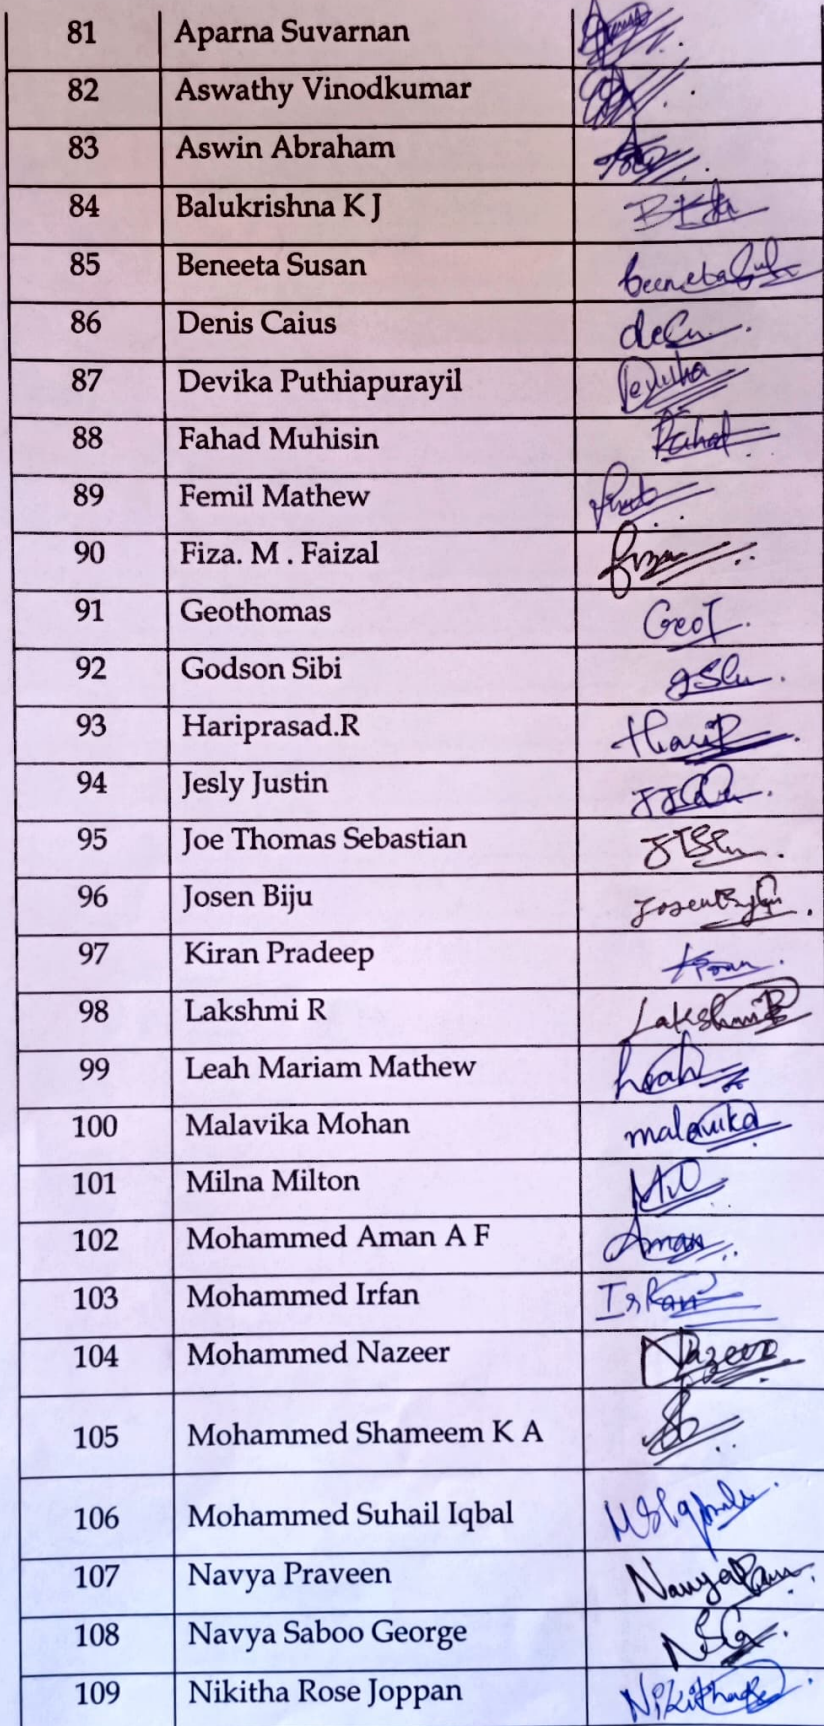 81 Aparna Suvarnan
82 Aswathy Vinodkumar
83 Aswin Abraham
84 Balukrishna K J
85 Beneeta Susan
86 Denis Caius
87 Devika Puthiapurayil
88 Fahad Muhisin Fahad
89 Femil Mathew
90 Fiza. M . Faizal
91 Geothomas GeoT.
92 Godson Sibi
93 Hariprasad.R
94 Jesly Justin
95 Joe Thomas Sebastian
96 Josen Biju
97 Kiran Pradeep
98 Lakshmi R Lakshmi R
99 Leah Mariam Mathew Leah
100 Malavika Mohan malavika
101 Milna Milton
102 Mohammed Aman A F Aman
103 Mohammed Irfan Irfan
104 Mohammed Nazeer Nazeer
105 Mohammed Shameem K A
106 Mohammed Suhail Iqbal
107 Navya Praveen
108 Navya Saboo George NSG
109 Nikitha Rose Joppan